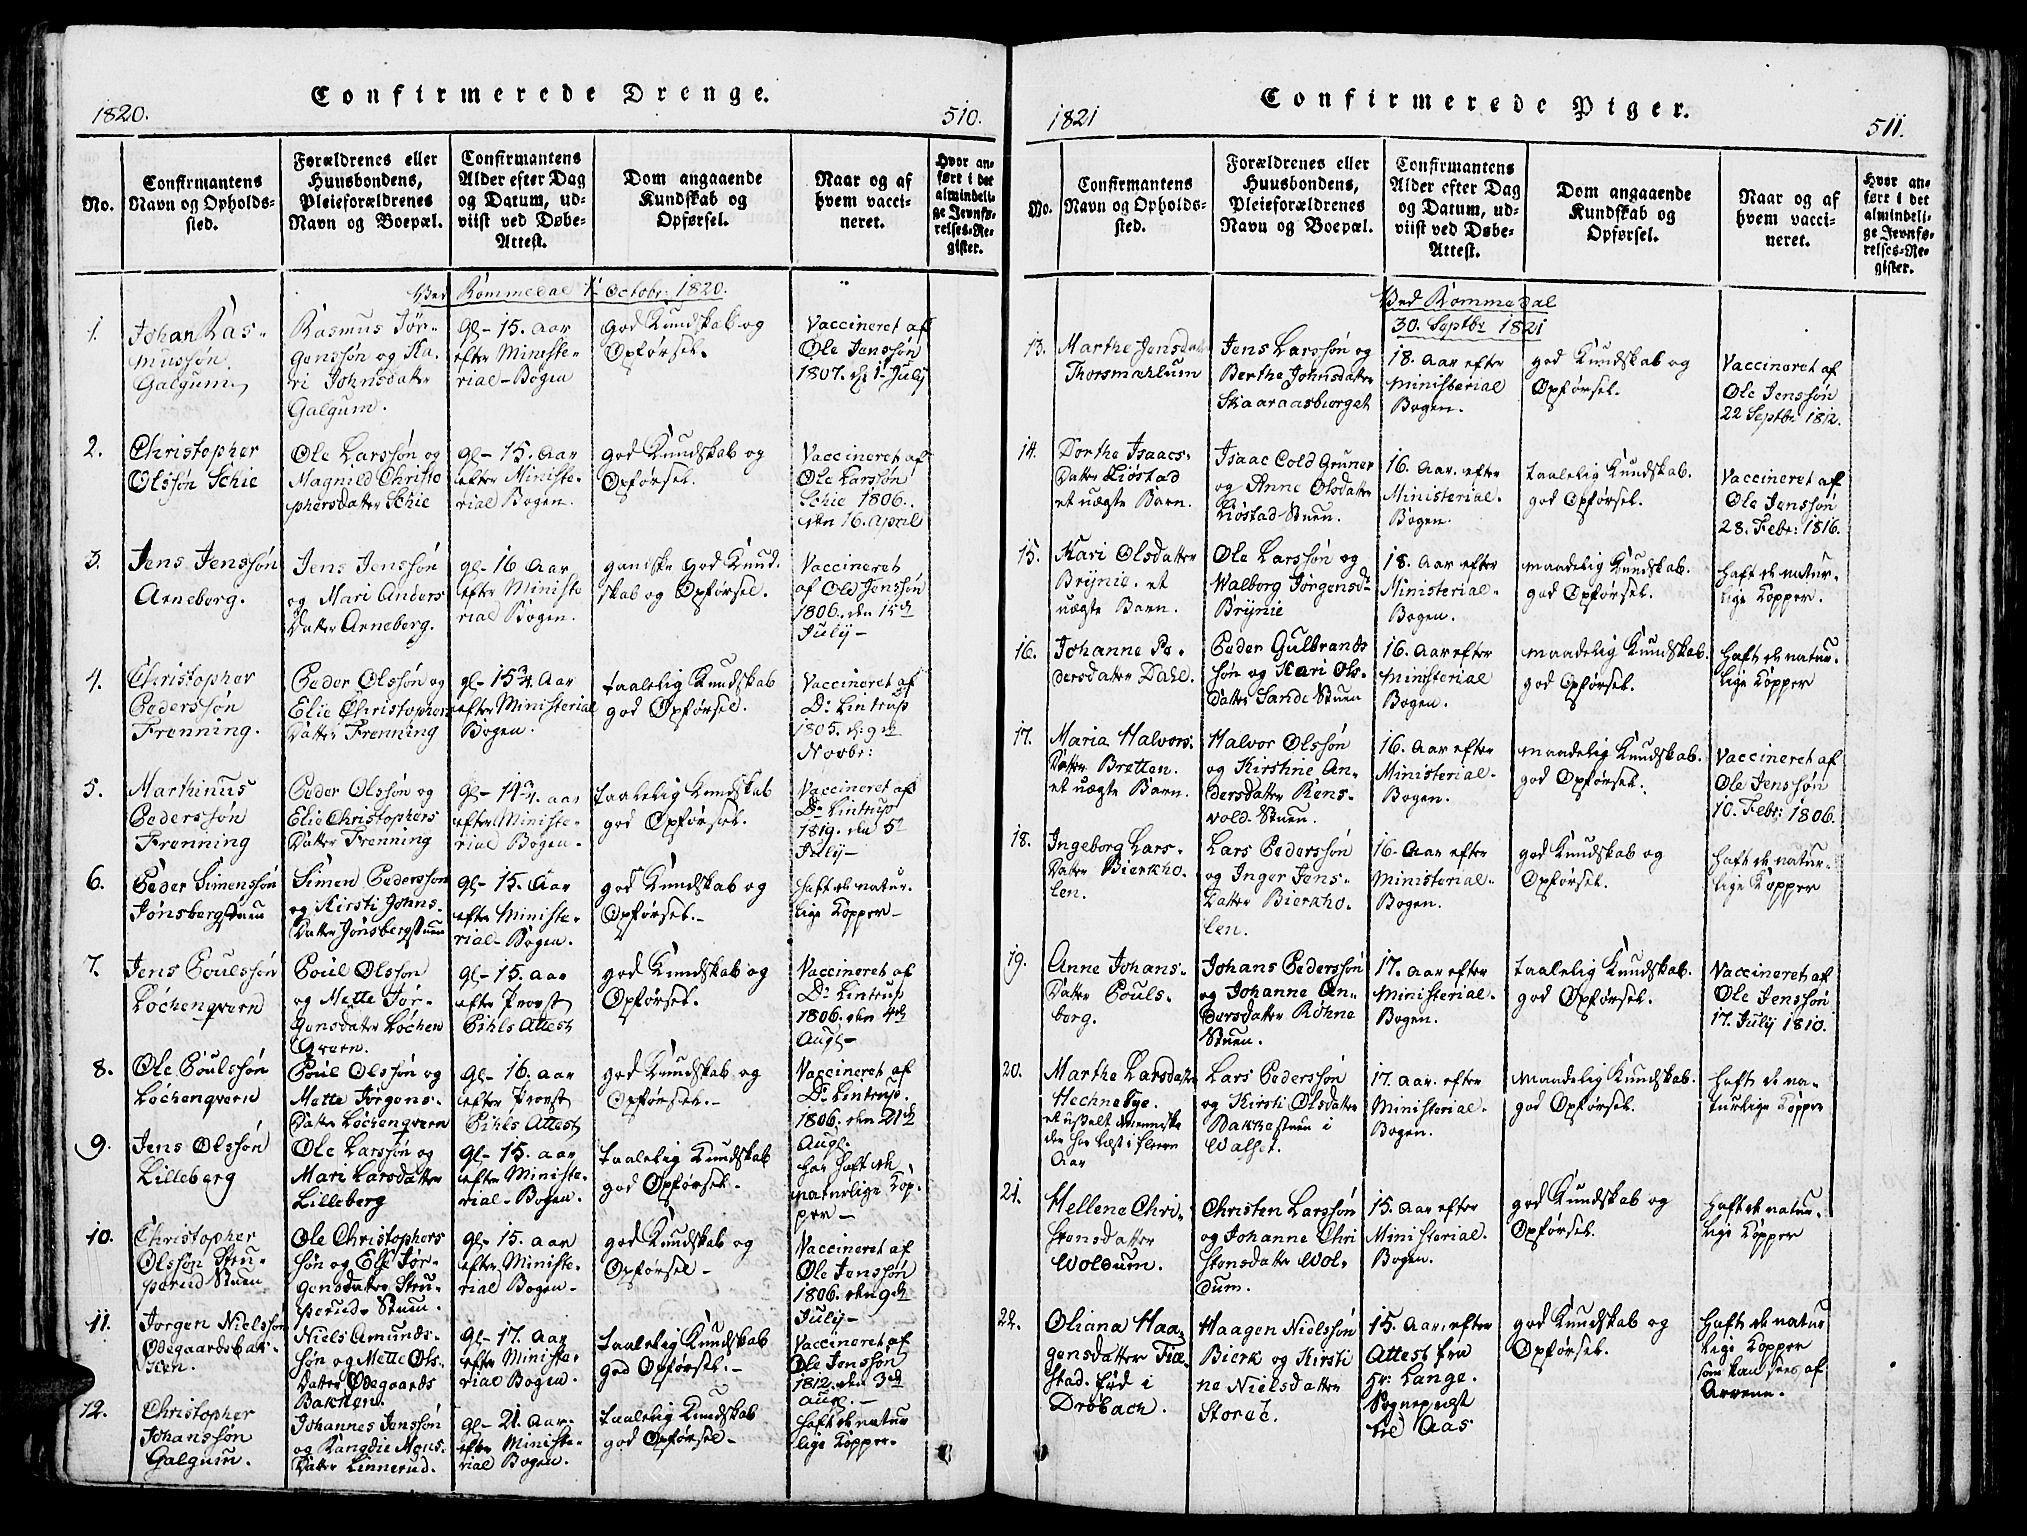 1820.
Confirmerede Drenge.
510.
No.
Confirmantens
Navn og Opholds-
sted.
Forældrenes eller
Huusbondens,
Pleieforældrenes
Navn og Boepæl.
Confirmantens
Alder efter Dag
og Datum, ud-
viist ved Døbe-
Attest.
Dom angaaende
Kundskab og
Opførsel.
Naar og af
hvem vacci-
neret.
Hvor an-
ført i det
almindeli-
ge Jevnfø-
relses-Re-
gister.
Ved Rommedal 1 October 1820.
1.
Johan Ras-
mussøn
Galgum
Rasmus Jør-
gensøn og Ka-
ri Johnsdatter
Galgum.
Gl- 15. Aar
efter Ministe-
rial-Bogen
God Kundskab og
Opførsel.
Vaccineret af
Ole Jenssøn
1807. d: 1- July
2.
Christopher
Olssøn Schie
Ole Larssøn og
Magnild Christo
phersdatter Schie
gl- 15. Aar
efter Ministe-
rial Bogen.
god Kundskab og
Opførsel.
Vaccineret af
Ole Larssøn
Schie 1806.
den 16. April
3.
Jens Jenssøn
Arneberg.
Jens Jenssøn
og Mari Anders
Datter Arneberg.
gl- 16 Aar
efter Ministe
rial Bogen.
ganske god Kund.
skab og Opførsel.
Vaccineret
af Ole Jenssøn
1806. den 15d
July-
4.
Christopher
Pederssøn
Frenning.
Peder Olssøn og
Elie Christophers
Datter Frenning
gl- 15¾ Aar
efter Ministerial
Bogen.
taalelig Kundskab
god Opførsel.
Vaccineret af
Dr Lintrup
1805. d: 9d
Novbr:
5.
Marthinus
Pederssøn
Frenning
Peder Olssøn og
Elie Christophers
Datter Frenning
Gl- 14¾. aar
efter Ministe-
rial Bogen-
taalelig Kundskab
god Opførsel.
Vaccineret af
Dr Lintrup
1819. den 5t
July-
6.
Peder Simenssøn
Jønsberg Stuen
Simen Pederssøn
og Kirsti Johns-
Datter Jønsberg Stuen
Gl- 15. Aar
efter Ministe-
rial- Bogen.
god Kundskab og
Opførsel.-
haft de natur-
lige Kopper-
7.
Jens Poulssøn
Løchenqvern
Poul Olssøn
og Mette Jør-
gensdatter Løchen
Qvern.
Gl- 15. aar
efter Provst
Pihls Attest
god Kundskab og
Opførsel.-
Vaccineret af
Dr Lintrup
1806. den 4d
Aug-
8.
Ole Poulssøn
Løchenqvern
Poul Olssøn og
Mette Jørgens-
Datter Løchenqvern
Gl- 16. aar
efter Provst
Pihls Attest
god Kundskab og
Opførsel.-
Vaccineret af
Dr Lintrup.
1806. den 21d
Aug.
9.
Jens Olssøn
Lilleberg
Ole Larssøn og
Mari Larsdatter
Lilleberg
Gl- 15. aar
efter Ministe-
rial- Bogen.
taalelig Kundskab
god Opførsel-
har haft de
naturlige Kop-
per-
10.
Christopher
Olssøn Stru-
perud Stuen
Ole Christophers
søn og Else Jør-
gensdatter Stru-
perud- Stuen.
gl- 15. aar
efter Ministe-
rial Bogen-
god Kundskab og
Opførsel-
Vaccineret af
Ole Jenssøn
1806. den 9d
July-
11.
Jørgen Nielssøn
Ødegaardsbak-
ken.
Niels Amunds-
søn og Mette Ols-
Datter Ødegaards
Bakken.
Gl- 17. Aar
efter Ministe-
rial Bogen.
taalelig Kundskab
god Opførsel.-
Vaccineret af
Ole Jenssøn
1812. den 3d
aug.-
12.
Christopher
Johanssøn
Galgum.
Johannes Jenssøn
og Rangdie Mons-
Datter Linnerud.
gl- 21. Aar-
efter Ministe-
rial Bogen.
taalelig Kundskab
god Opførsel-
haft de natur
lige Kopper-
1821
Confirmerede Piger.
511.
No.
Confirmantens
Navn og Opholds-
sted.
Forældrenes eller
Huusbondens,
Pleieforældrenes
Navn og Boepæl.
Confirmantens
Alder efter Dag
og Datum, ud-
viist ved Døbe-
Attest.
Dom angaaende
Kundskab og
Opførsel.
Naar og af
hvem vacci-
neret.
Hvor an-
ført i det
almindeli-
ge Jevnfø-
relses-Re-
gister.
Ved Rommedal
30. Septbr 1821
13.
Marthe Jensdat
Thorsmæhlum
Jens Larssøn og
Berthe Johnsdatter
Skaaraasbierget
18. Aar efter
Ministerial
Bogen.
god Kundskab og
Opførsel.
Vaccineret af
Ole Jenssøn
22 Septbr 1812.
14.
Dorthe Isaacs-
Datter Liøstad
et uægte Barn.
Isaac Cold Gruner
og Anne Olsdatter
Liøstad Stuen.
16. Aar. efter
Ministerial-
Bogen.
taalelig Kundskab.
god Opførsel.
Vaccineret af
Ole Jenssøn
28. Febr: 1816.
15.
Kari Olsdatter
Brynie. et
uægte Barn.
Ole Larssøn og
Walborg Jørgensdr
Brynie
18. Aar efter
Ministerial-
Bogen.
maadelig Kundskab.
god Opførsel.
haft de natur-
lige Kopper.
16.
Johanne Pe-
dersdatter Dahl.
Peder Gulbrands
søn og Kari Ols-
Datter Sande Stuen
16. Aar efter
Ministerial
Bogen.
maadelig Kundskab.
god Opførsel.
haft de natur-
lige Kopper
17.
Maria Halvors-
Datter Bretten.
et uægte Barn.
Halvor Olssøn
og Kirstine An-
dersdatter Rens-
vold- Stuen.
16. Aar efter
Ministerial-
Bogen.
maadelig Kundskab.
god Opførsel.
Vaccineret af
Ole Jenssøn
10. Febr: 1806.
18.
Ingeborg Lars-
Datter Bierkho-
len.
Lars Pederssøn
og Inger Jens-
Datter Bierkho-
len.
16- Aar efter
Ministerial-
Bogen.
god Kundskab og
Opførsel.
haft de natur-
lige Kopper
19.
Anne Johans-
Datter Pouls-
berg.
Johans Pederssøn
og Johanne An-
dersdatter Røhne
Stuen.
17. Aar efter
Ministerial-
Bogen.
taalelig Kundskab.
god Opførsel.
Vaccineret af
Ole Jenssøn
17. July 1810.
20.
Marthe Larsdatter
Hechnebye.
et usselt Menneske
der har læst i fleere
Aar
Lars Pederssøn
og Kirsti Olsdatter
Bakkestuen i
Walset.
17. Aar. efter
Ministerial-
Bogen.
maadelig Kundskab.
god Opførsel.
haft de na-
turlige Kopper
21.
Hellene Chri-
stensdatter
Woldum.
Christen Larssøn
og Johanne Chri
stensdatter Wol-
dum.
15. Aar efter
Ministerial-
Bogen.
god Kundskab og
Opførsel.
haft de natur-
lige Kopper
22.
Oliana Haa-
gensdatter Fiæ-
stad. fød i
Drøbach.
Haagen Nielssøn
Bierk og Kirsti
ne Nielsdatter
Storøe.
15. Aar. efter
Attest fra
Hr: Lange.
Sognepræst
til Aas
god Kundskab og
Opførsel.
haft de natur
lige Kopper
som kan sees af
Arrene.